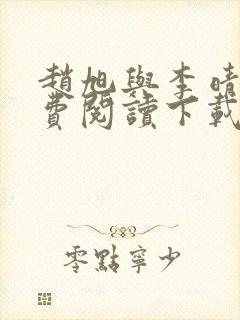 趙旭與李晴
費閱讀下載
零點寧少